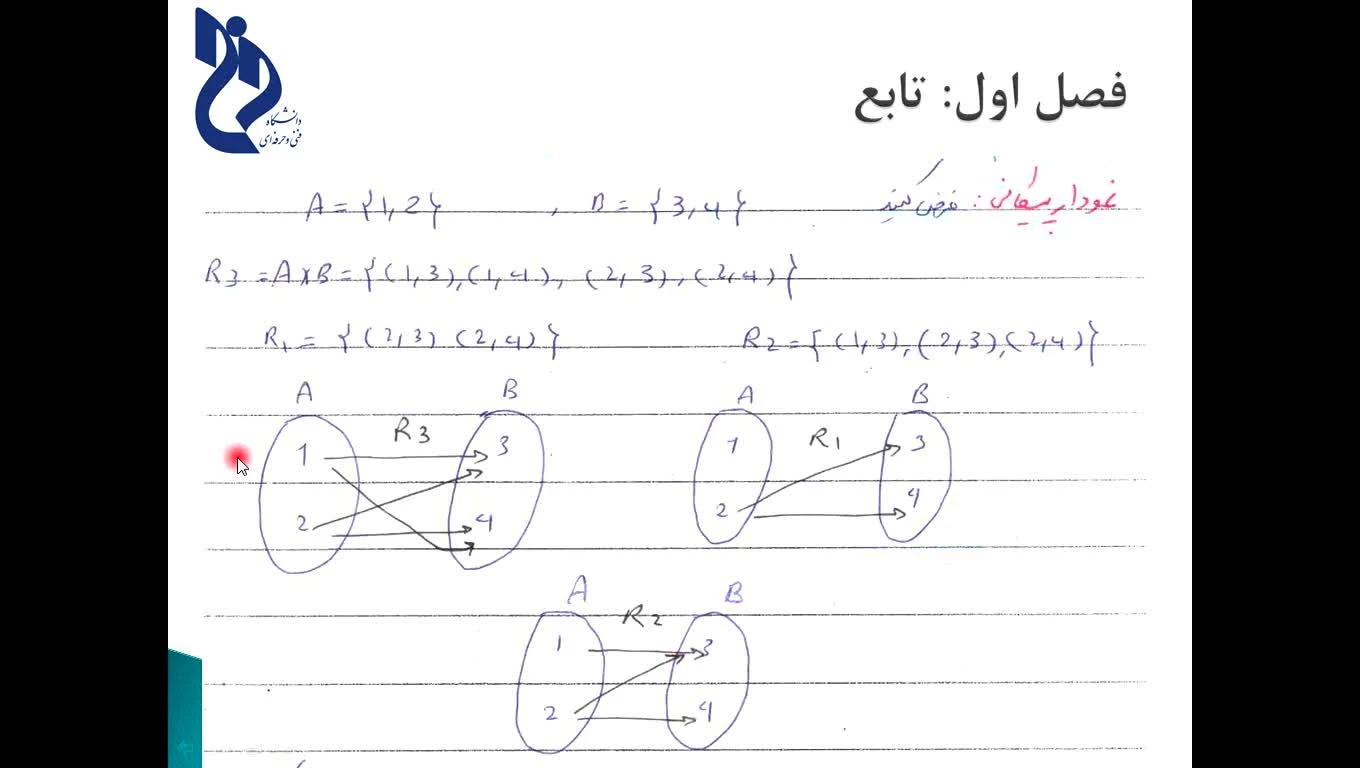 فصل اول: تابع
دانشگاه
فنی و حرفه‌ای
نمودار پیکانی: فرض کنید A = {1,2} , B = {3,4}
R3 = A×B = {(1,3),(1,4), (2,3), (2,4)}
R1 = {(2,3) (2,4)} R2 = {(1,3),(2,3),(2,4)}
A B A B
R3 R1
1 3 1 3
2 4 2 4
A B
R2
1 3
2 4